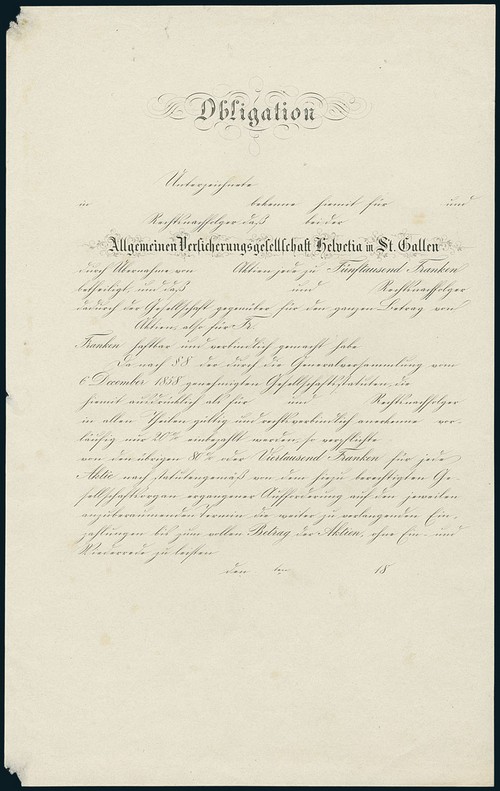 Obligation
Unterzeichnete
in bekenne hiemit für und
Rechtsnachfolger daß bei der
Allgemeinen Versicherungsgesellschaft Helvetia in St. Gallen
durch Uebernahme von Aktien jede zu Fünftausend Franken
betheiligt, und daß und Rechtsnachfolger
dadurch der Gesellschaft gegenüber für den ganzen Betrag von
Aktien, also für Fr.
Franken haftbar und verbindlich gemacht habe
Da nach §8 der durch die Generalversammlung vom
6 December 1858 genehmigten Gesellschaftsstatuten, die
hiemit ausdrücklich als für und Rechtsnachfolger
in allen Theilen gültig und rechtsverbindlich anerkenne vor-
läufig nur 20% einbezahlt werden, so verpflichte
von den übrigen 80% oder Viertausend Franken für jede
Aktie nach statutengemäß von dem hiezu berechtigten Ge-
sellschaftsorgan ergangener Aufforderung auf den jeweilen
anzuberaumenden Termin die weiter zu verlangenden Ein-
zahlungen bis zum vollen Betrag der Aktien, ohne Ein- und
Wiederrede zu leisten
den ten 18